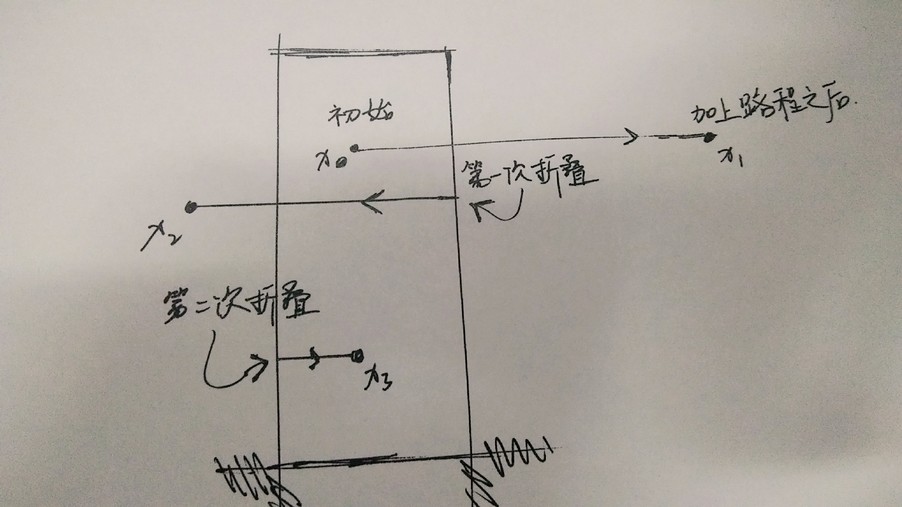 初始
加上路程之后.
x₀
x₁
第一次折叠
x₂
第二次折叠
x₃